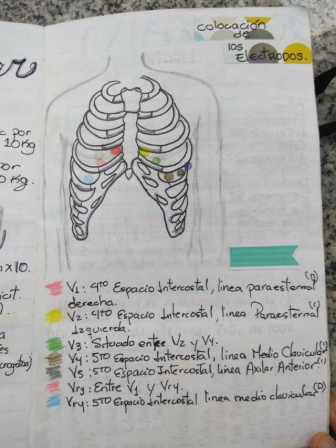 colocación
de
los
Electrodos.
por
10Kg
por
0 Kg.
n x 10.
V1: 4to Espacio Intercostal, linea paraesternal (D)
derecha.
V2: 4to Espacio Intercostal, linea Paraesternal (I)
Izquierda.
V3: Situado entre V2 y V4.
V4: 5to Espacio Intercostal, linea Medio Clavicular (I)
V5: 5to Espacio Intercostal, linea Axilar Anterior (I)
Vr3: Entre V1 y Vr4.
Vr4: 5to Espacio Intercostal linea medio clavicular (D)